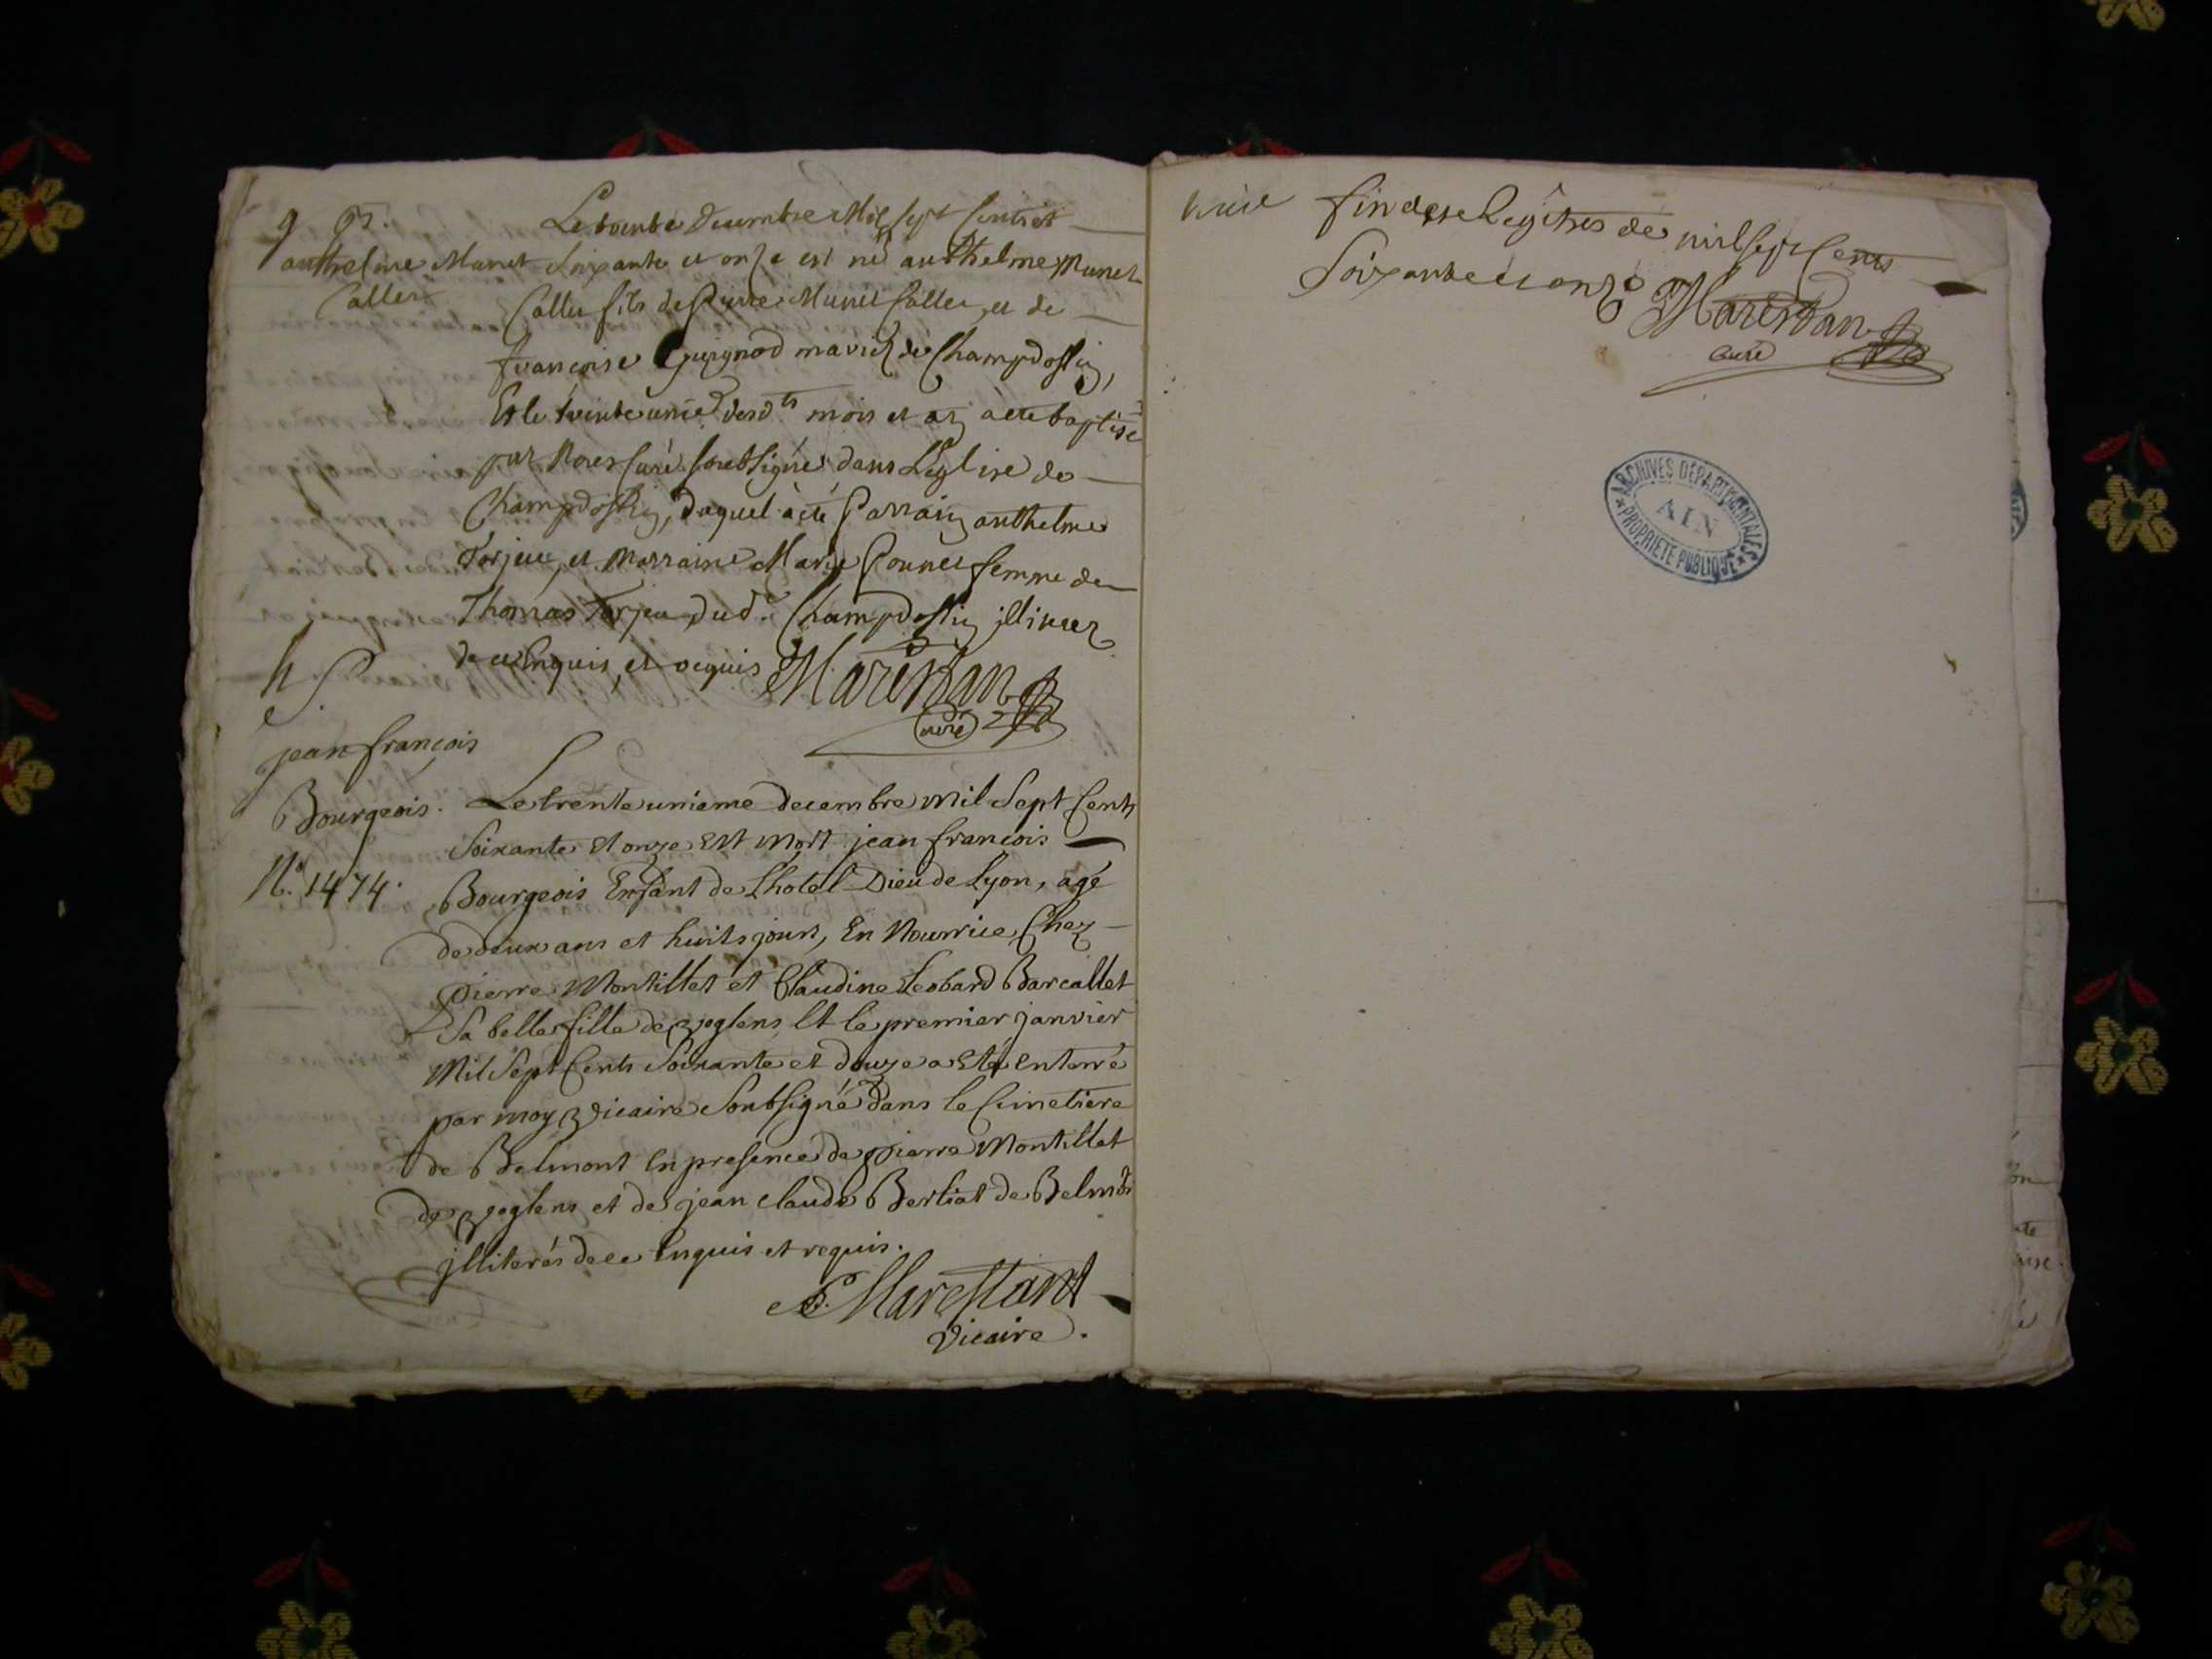 g B.
anthelme Munet
Callet
Le trente decembre Mil Sept Cents et
Soixante et onze est né anthelme Munet
Callet fils de pierre Munet Callet, et de
francoise Guignod mariez de Champdossin,
Et le trente unie. desd.ts mois et an a eté baptisé
par Nous Curé soubsigné dans L'eglise de
Champdossin, duquel a eté Parrain anthelme
Torjeu, et Marraine Marie femme de
Thomas Torjeu dud.t Champdossin illiterez
de ce Enquis, et requis Marestan
curé
h S.
jean françois
Bourgeois.
N.o 1474.
Le trente unieme decembre mil Sept Cents
Soixante Et onze Est Mort jean francois
Bourgeois Enfant de L'hotel-Dieu de Lyon, agé
de deux ans et huits jours, En Nourrice Chez
pierre Montillet et Claudine Leobard Barcallet
Sa belle fille de et le premier janvier
Mil Sept Cents Soixante et douze a Eté Enterré
par moy vicaire Soubsigné dans le Cimetiere
de Belmont En presence de pierre Montillet
de et de jean claude Berliat de Belmont
jlliterés de ce Enquis et requis.
Marestant
Vicaire.
fin de ce Regîtres de mil sept Cents
Soixante et onze Marestan
curé
ARCHIVES DEPARTEMENTALES
AIN
PROPRIETE PUBLIQUE